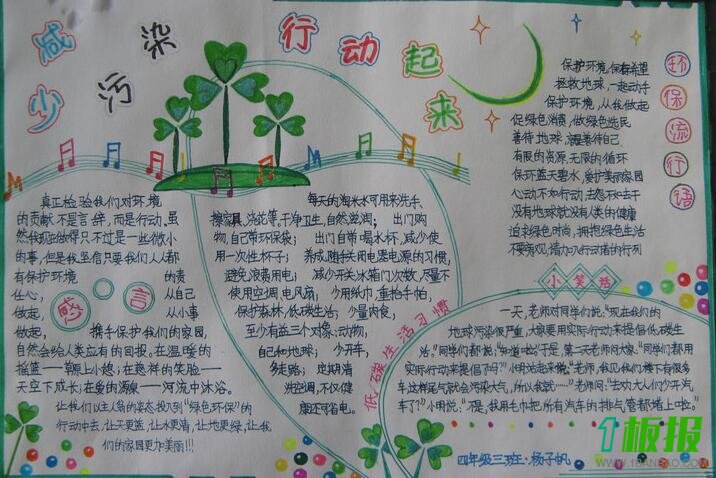 减少污染
行动起来
真正检验我们对环境
的贡献不是言辞,而是行动。虽
然我现在做得只不过是一些微小
的事,但是我坚信只要我们人人都
有保护环境的责
任心,从自己
做起,从小事
做起,携手保护我们的家园,
自然会给人类应有的回报。在温暖的
摇篮——草原上小憩;在慈祥的笑脸——
天空下成长;在爱的源泉——河流中沐浴。
让我们以主人翁的姿态投入到“绿色环保”的
行动中去,让天更蓝,让水更清,让地更绿,让我
们的家园更加美丽!!!
感言
每天的淘米水可用来洗手、
擦家具、浇花等,干净卫生,自然滋润;出门购
物,自己带环保袋;出门自带喝水杯,减少使
用一次性杯子;养成随手关闭电器电源的习惯,
避免浪费用电;减少开关冰箱门次数,尽量不
使用空调、电风扇;少用纸巾,重拾手帕,
保护森林,低碳生活;少量肉食,
至少有益三个对象:动物,
自己和地球;少开车,
多走路;定期清
洗空调,不仅健
康还可省电。
低碳生活习惯
环保流行语
保护环境,保有希望
拯救地球,一起动手
保护环境,从我做起
促绿色消费,做绿色选民
善待地球,善待自己
有限的资源,无限的循环
保环蓝天碧水,爱护美丽家园
心动不如行动,去怨不如去干
没有地球就没有人类的健康
追求绿色时尚,拥抱绿色生活
小笑话
一天,老师对同学们说:“现在我们的
地球污染很严重,大家要用实际行动来提倡低碳生
活。”同学们都说:“知道啦!”于是,第二天老师问大家:“同学们都用
实际行动来提倡了吗?”小明站起来说:“老师,我见我们楼下有很多
车,这样尾气就会污染大气,所以我就……”老师问:“去劝大人们少开汽
车了?”小明说:“不是,我用毛巾把所有汽车的排气管都堵上啦。”
四年级三班:杨子帆
板报
WWW.1BANBAO.COM